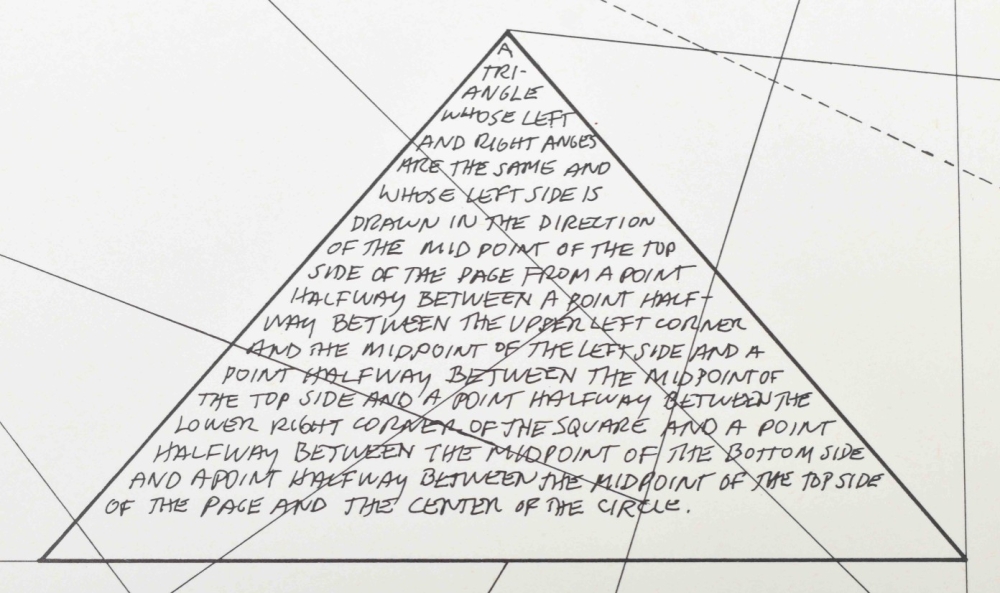 A
TRI-
ANGLE
WHOSE LEFT
AND RIGHT ANGES
ARE THE SAME AND
WHOSE LEFT SIDE IS
DRAWN IN THE DIRECTION
OF THE MID POINT OF THE TOP
SIDE OF THE PAGE FROM A POINT
HALFWAY BETWEEN A POINT HALF-
WAY BETWEEN THE UPPER LEFT CORNER
AND THE MIDPOINT OF THE LEFT SIDE AND A
POINT HALFWAY BETWEEN THE MIDPOINT OF
THE TOP SIDE AND A POINT HALFWAY BETWEEN THE
LOWER RIGHT CORNER OF THE SQUARE AND A POINT
HALFWAY BETWEEN THE MIDPOINT OF THE BOTTOM SIDE
AND A POINT HALFWAY BETWEEN THE MIDPOINT OF THE TOP SIDE
OF THE PAGE AND THE CENTER OF THE CIRCLE.